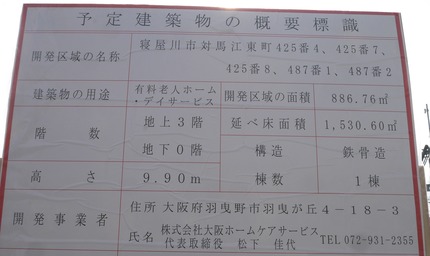 予定建築物の概要標識
開発区域の名称
寝屋川市対馬江東町425番4、425番7、
425番8、487番1、487番2
建築物の用途
有料老人ホーム
・デイサービス
開発区域の面積
886.76㎡
階数
地上3階
地下0階
延べ床面積
1,530.60㎡
構造
鉄骨造
高さ
9.90m
棟数
1棟
開発事業者
住所 大阪府羽曳野市羽曳が丘4-18-3
氏名 株式会社大阪ホームケアサービス
代表取締役 松下 佳代
TEL 072-931-2355